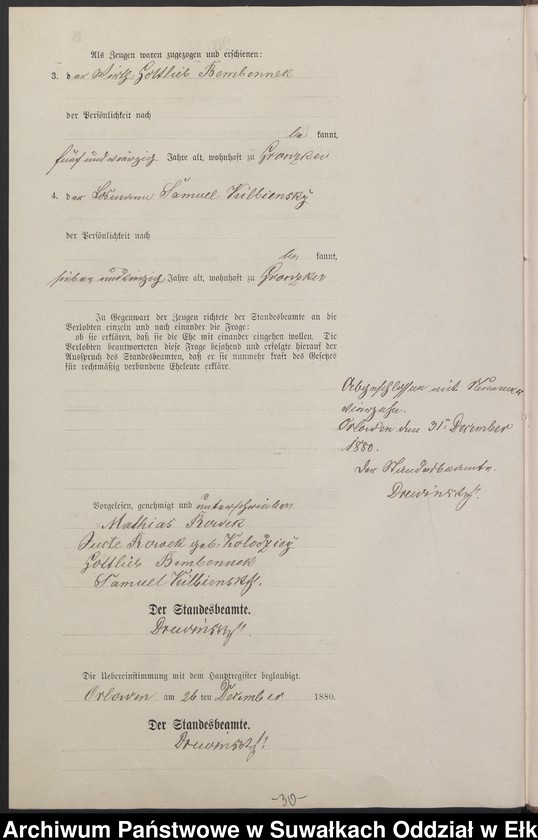 Als Zeugen waren zugezogen und erschienen:
3. der Wirth Gottlieb Bembennek
der Persönlichkeit nach
be kannt,
fünf und vierzig Jahre alt, wohnhaft zu Gronzken
4. der Losmann Samuel Kilbiensky
der Persönlichkeit nach
be kannt,
sieben und vierzig Jahre alt, wohnhaft zu Gronzken
In Gegenwart der Zeugen richtete der Standesbeamte an die
Verlobten einzeln und nach einander die Frage:
ob sie erklären, daß sie die Ehe mit einander eingehen wollen. Die
Verlobten beantworteten diese Frage bejahend und erfolgte hierauf der
Ausspruch des Standesbeamten, daß er sie nunmehr kraft des Gesetzes
für rechtmäßig verbundene Eheleute erkläre.
Abgeschlossen mit Nummer
vierzehn.
Orlowen den 31ten Dezember
1880.
Der Standesbeamte.
Drewinsky.
Vorgelesen, genehmigt und unterschrieben
Mathias Rowek
Juste Rowek geb. Kolodziey
Gottlieb Bembennek
Samuel Kilbiensky.
Der Standesbeamte.
Drewinsky.
Die Uebereinstimmung mit dem Hauptregister beglaubigt.
Orlowen am 26 ten Dezember 1880.
Der Standesbeamte.
Drewinsky.
-30-
Archiwum Państwowe w Suwałkach Oddział w Ełk